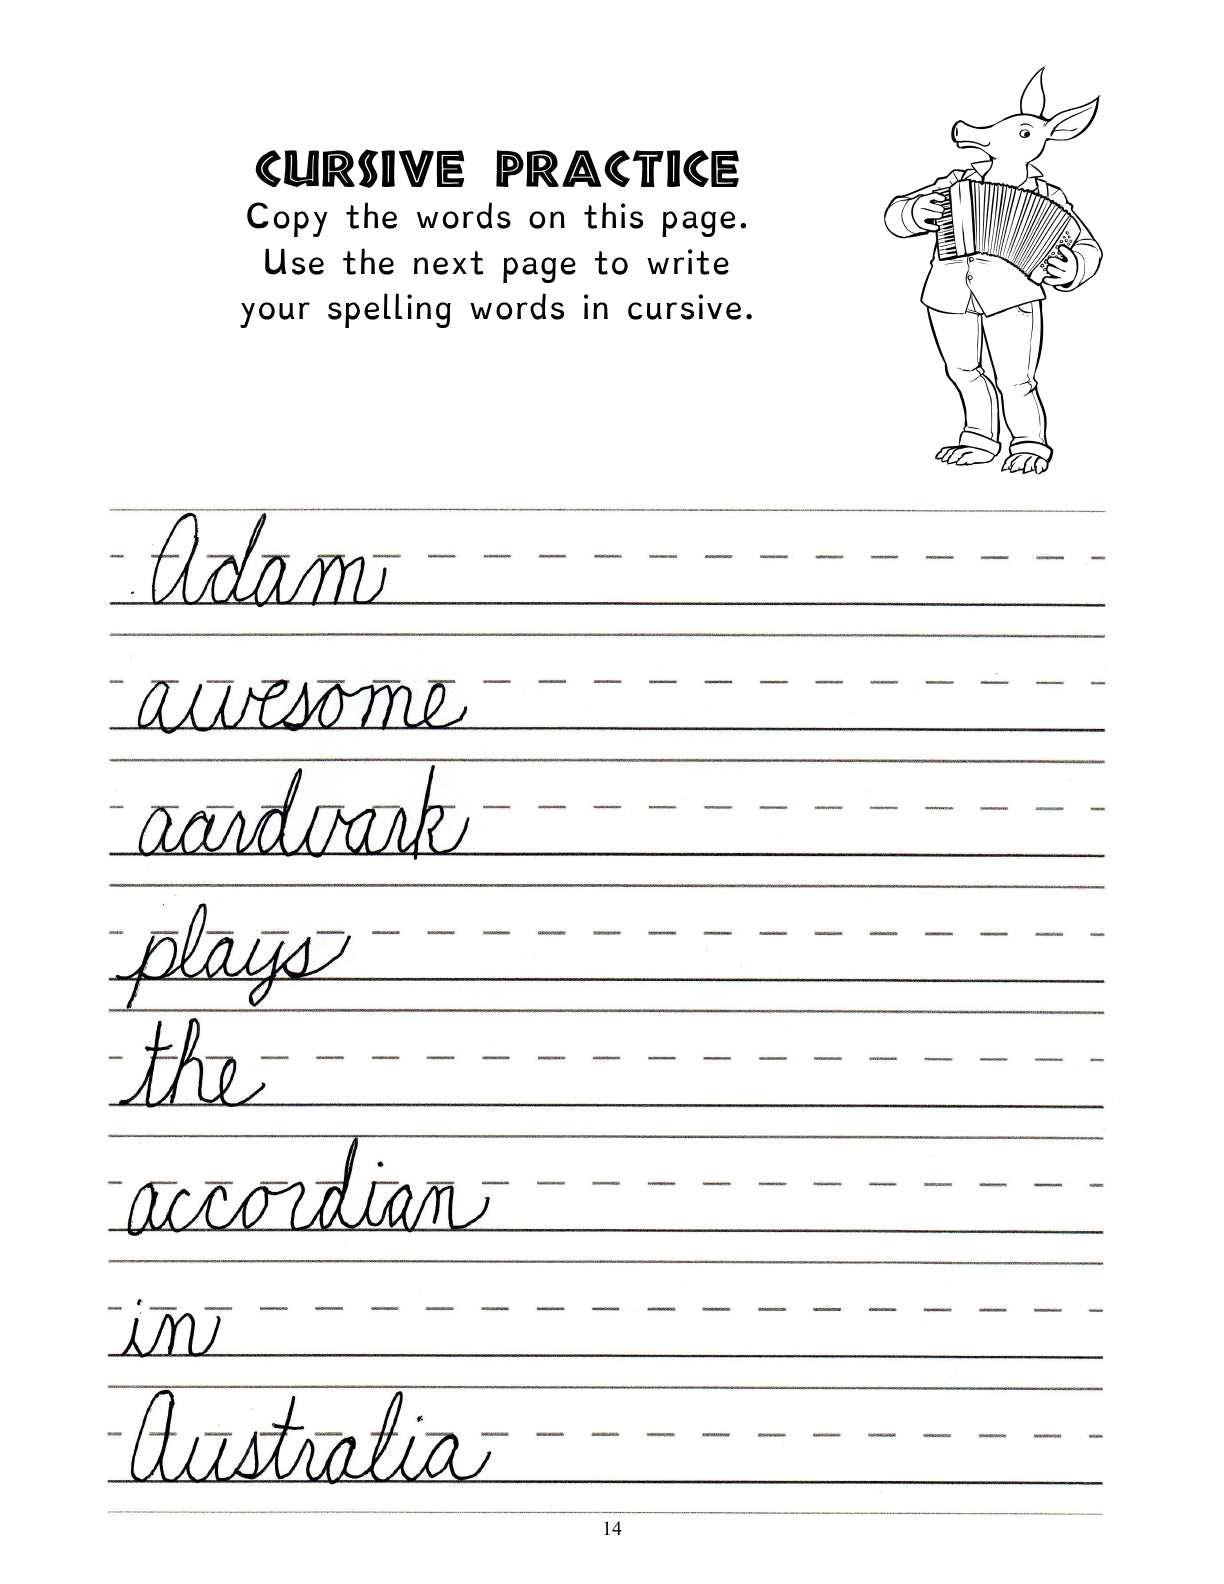 CURSIVE PRACTICE
Copy the words on this page.
Use the next page to write
your spelling words in cursive.
Adam
awesome
aardvark
plays
the
accordian
in
Australia
14